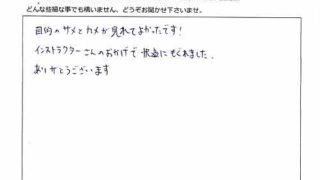 どんな些細な事でも構いません、どうぞお聞かせ下さいませ。
目的のサメとカメが見れてよかったです！
インストラクターさんのおかげで快適にもぐれました．
ありがとうございます